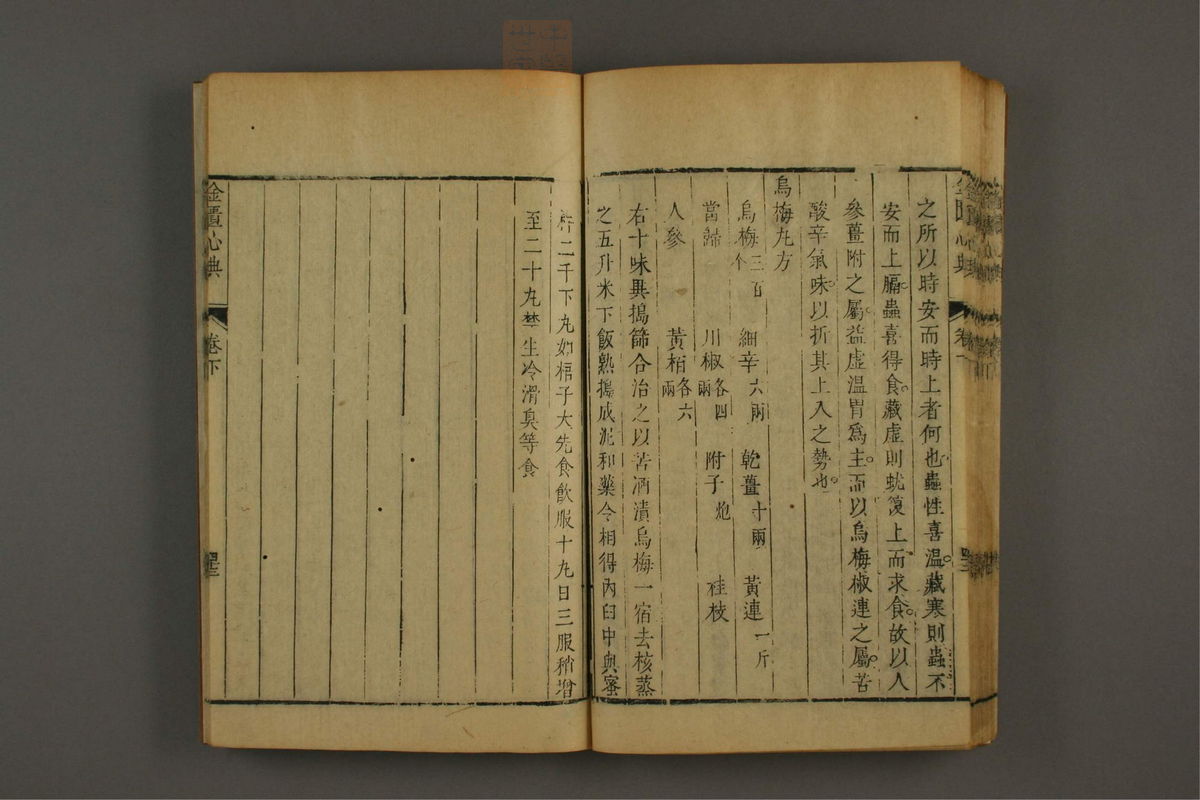 之所以時安而時上者何也蟲性喜溫藏寒則蟲不
安而上膈蟲喜得食藏虛則蚘復上而求食故以人
參薑附之屬益虛溫胃爲主而以烏梅椒連之屬苦
酸辛氣味以折其上入之勢也
烏梅丸方
烏梅三百个 細辛六兩 乾薑十兩 黃連一斤
當歸 川椒各四兩 附子炮 桂枝
人參 黃栢各六兩
右十味異搗篩合治之以苦酒漬烏梅一宿去核蒸
之五升米下飯熟搗成泥和藥令相得內臼中與蜜
杵二千下丸如梧子大先食飲服十丸日三服稍增
至二十丸禁生冷滑臭等食
金匱心典 卷下